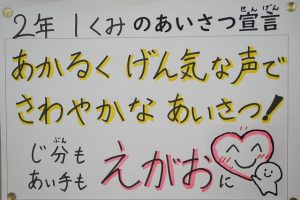 2年1くみのあいさつ宣言
せんげん
あかるくげん気な声で
さわやかなあいさつ!
じ分も
ぶん
あい手も
えがおに